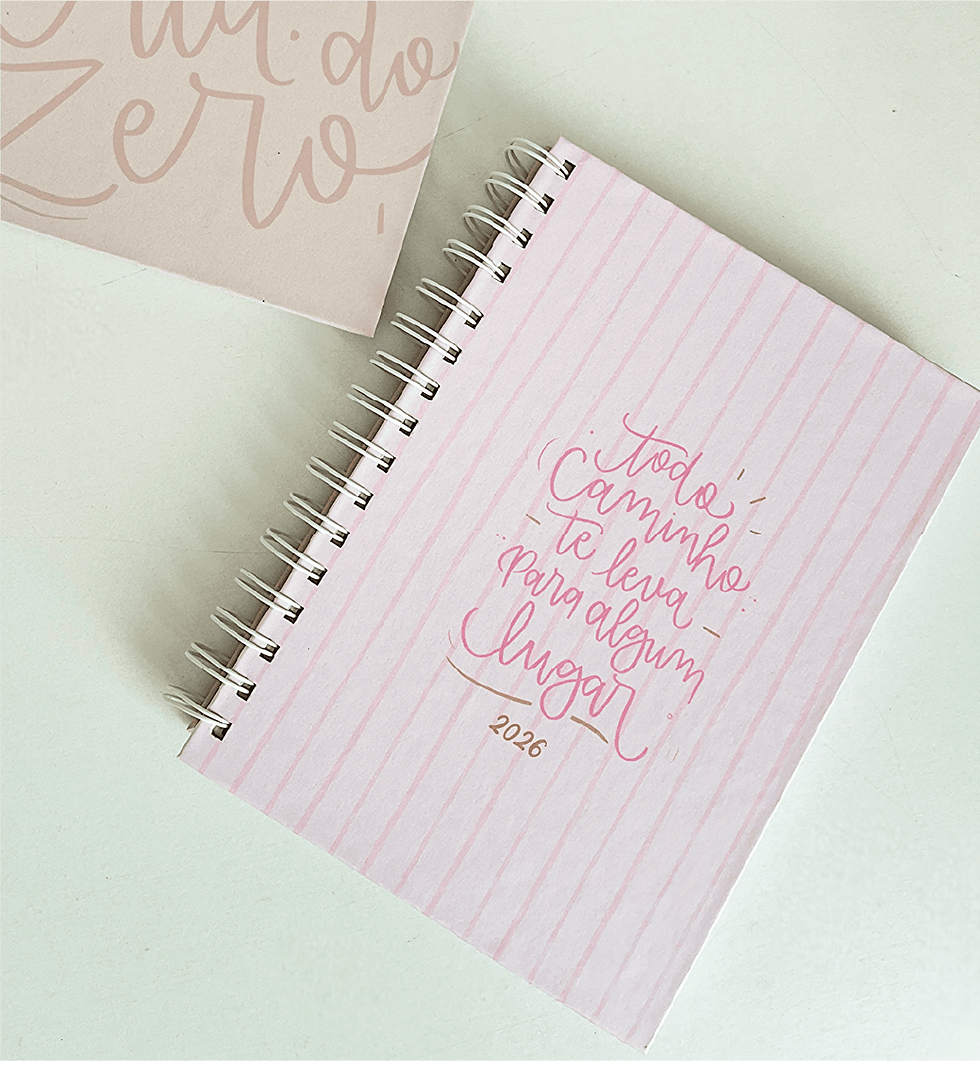 do
Zero
todo
Caminho
te leva
para algum
lugar
2026